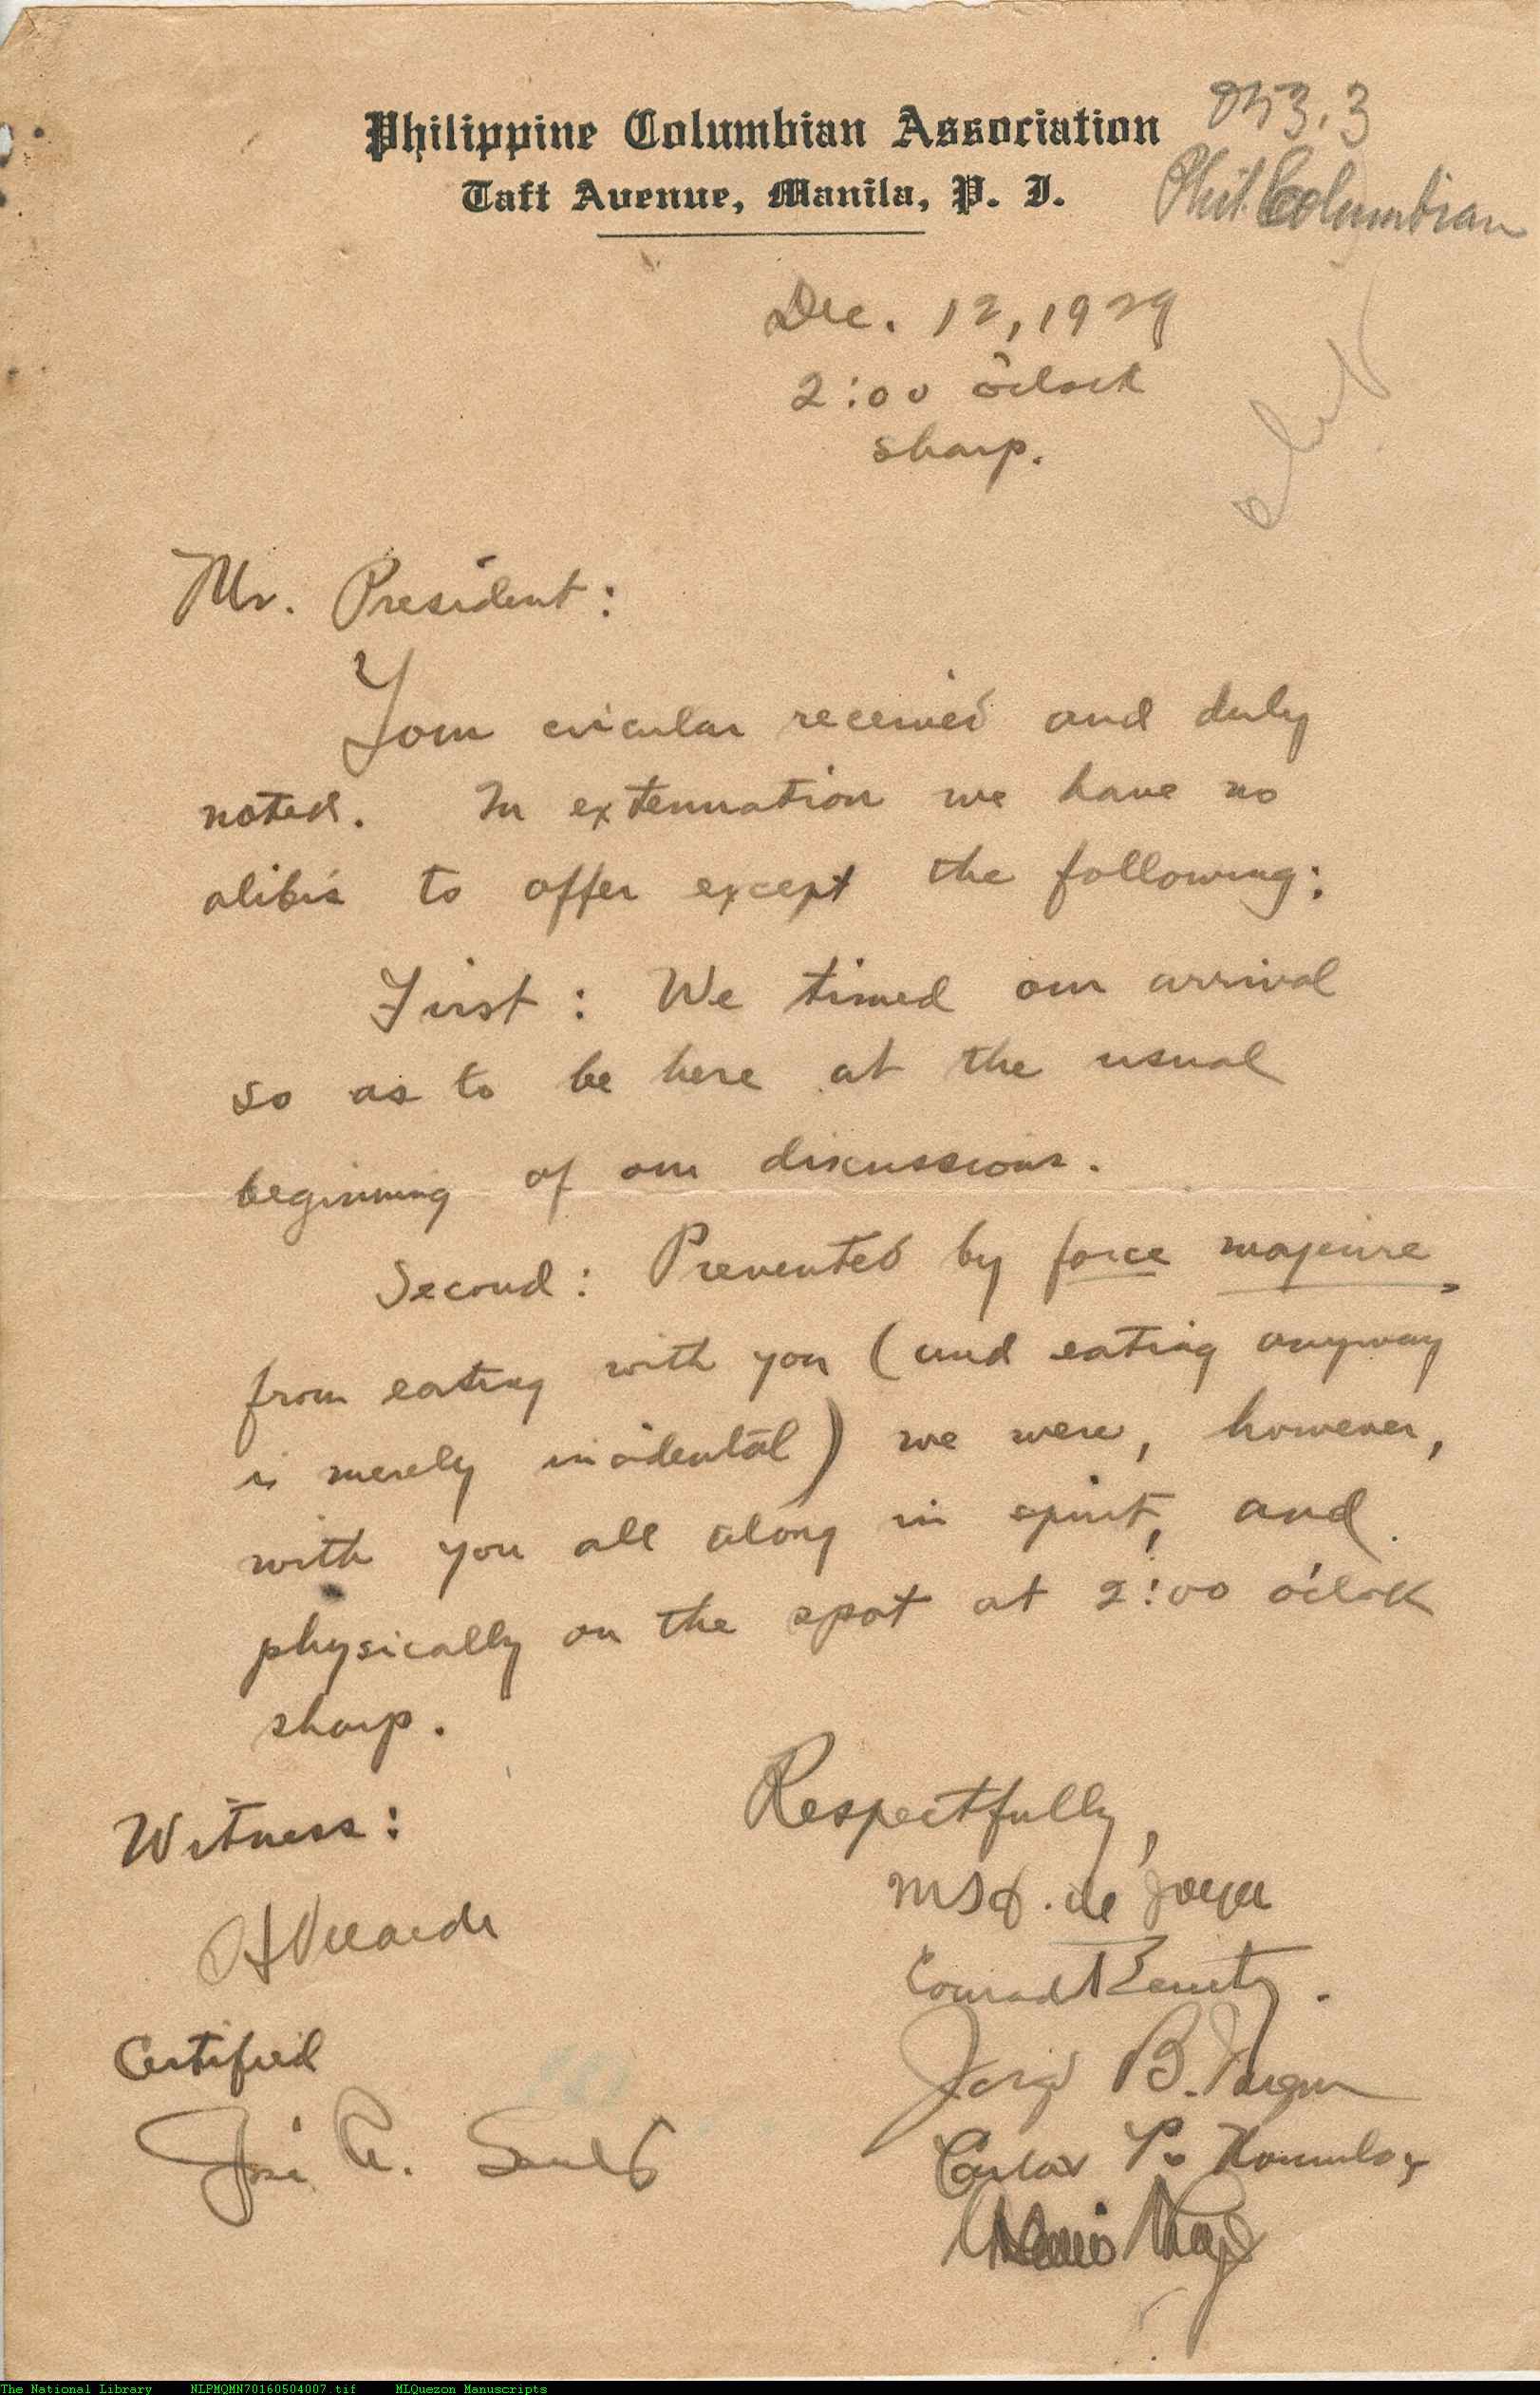 Philippine Columbian Association
Taft Avenue, Manila, P. I.
Phil. Columbian
Dec. 12, 1929
2:00 o'clock
sharp.
Mr. President:
Your circular received and duly
noted. In extenuation we have no
alibis to offer except the following:
First: We timed our arrival
so as to be here at the usual
beginning of our discussions.
Second: Prevented by force majeure,
from eating with you (and eating anyway
is merely incidental) we were, however,
with you all along in spirit, and
physically on the spot at 2:00 o'clock
sharp.
Respectfully,
Witness:
de Joya
Conrado Benitez.
Certified
Jorge B. Vargas
José A.
Carlos P. Romulo
The National Library NLPMQMN70160504007.tif MLQuezon Manuscripts